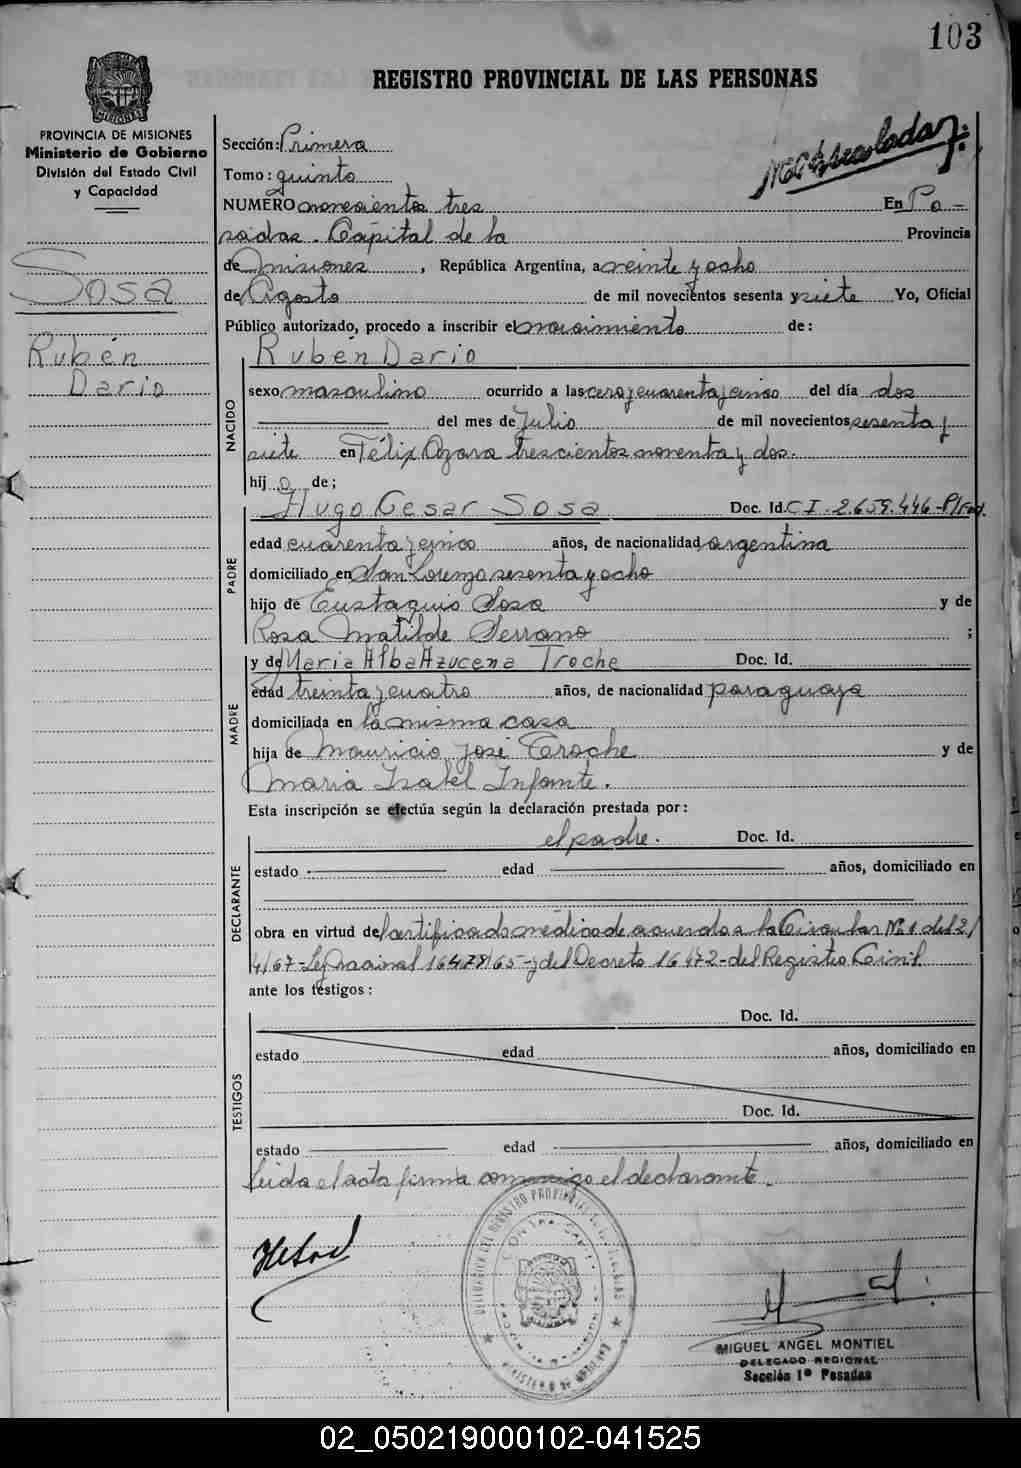 103
REGISTRO PROVINCIAL DE LAS PERSONAS
PROVINCIA DE MISIONES
Ministerio de Gobierno
División del Estado Civil
y Capacidad
Sosa
Rubén
Dario
Sección: Primera
Tomo: quinto
NUMERO novecientos tres En Po-
sadas. Capital de la Provincia
de Misiones, República Argentina, a veinte y ocho
de Agosto de mil novecientos sesenta y siete Yo, Oficial
Público autorizado, procedo a inscribir el nacimiento de:
NACIDO
Rubén Dario
sexo masculino ocurrido a las cero y cuarenta y cinco del día dos
del mes de Julio de mil novecientos sesenta y
siete en Félix Azara trescientos noventa y dos.
hijo de;
PADRE
Hugo Cesar Sosa Doc. Id. C I. 2.659.446-P/Fed.
edad cuarenta y cinco años, de nacionalidad argentina
domiciliado en San Lorenzo sesenta y ocho
hijo de Eustaquio Sosa y de
Rosa Matilde Serrano ;
MADRE
y de Maria Alba Azucena Troche Doc. Id.
edad treinta y cuatro años, de nacionalidad paraguaya
domiciliada en la misma casa
hija de Mauricio José Troche y de
Maria Isabel Infante.
Esta inscripción se efectúa según la declaración prestada por:
DECLARANTE
el padre. Doc. Id.
estado edad años, domiciliado en
obra en virtud de certificado médico de acuerdo a la Circular Nº 1 del 2/
4/67-Ley Nacional 16478/65-y del Decreto 16472-del Registro Civil.
ante los testigos:
TESTIGOS
Doc. Id.
estado edad años, domiciliado en
Doc. Id.
estado edad años, domiciliado en
Leída el acta firma conmigo el declarante.
MIGUEL ANGEL MONTIEL
DELEGADO REGIONAL
Sección 1º Posadas
02_050219000102-041525